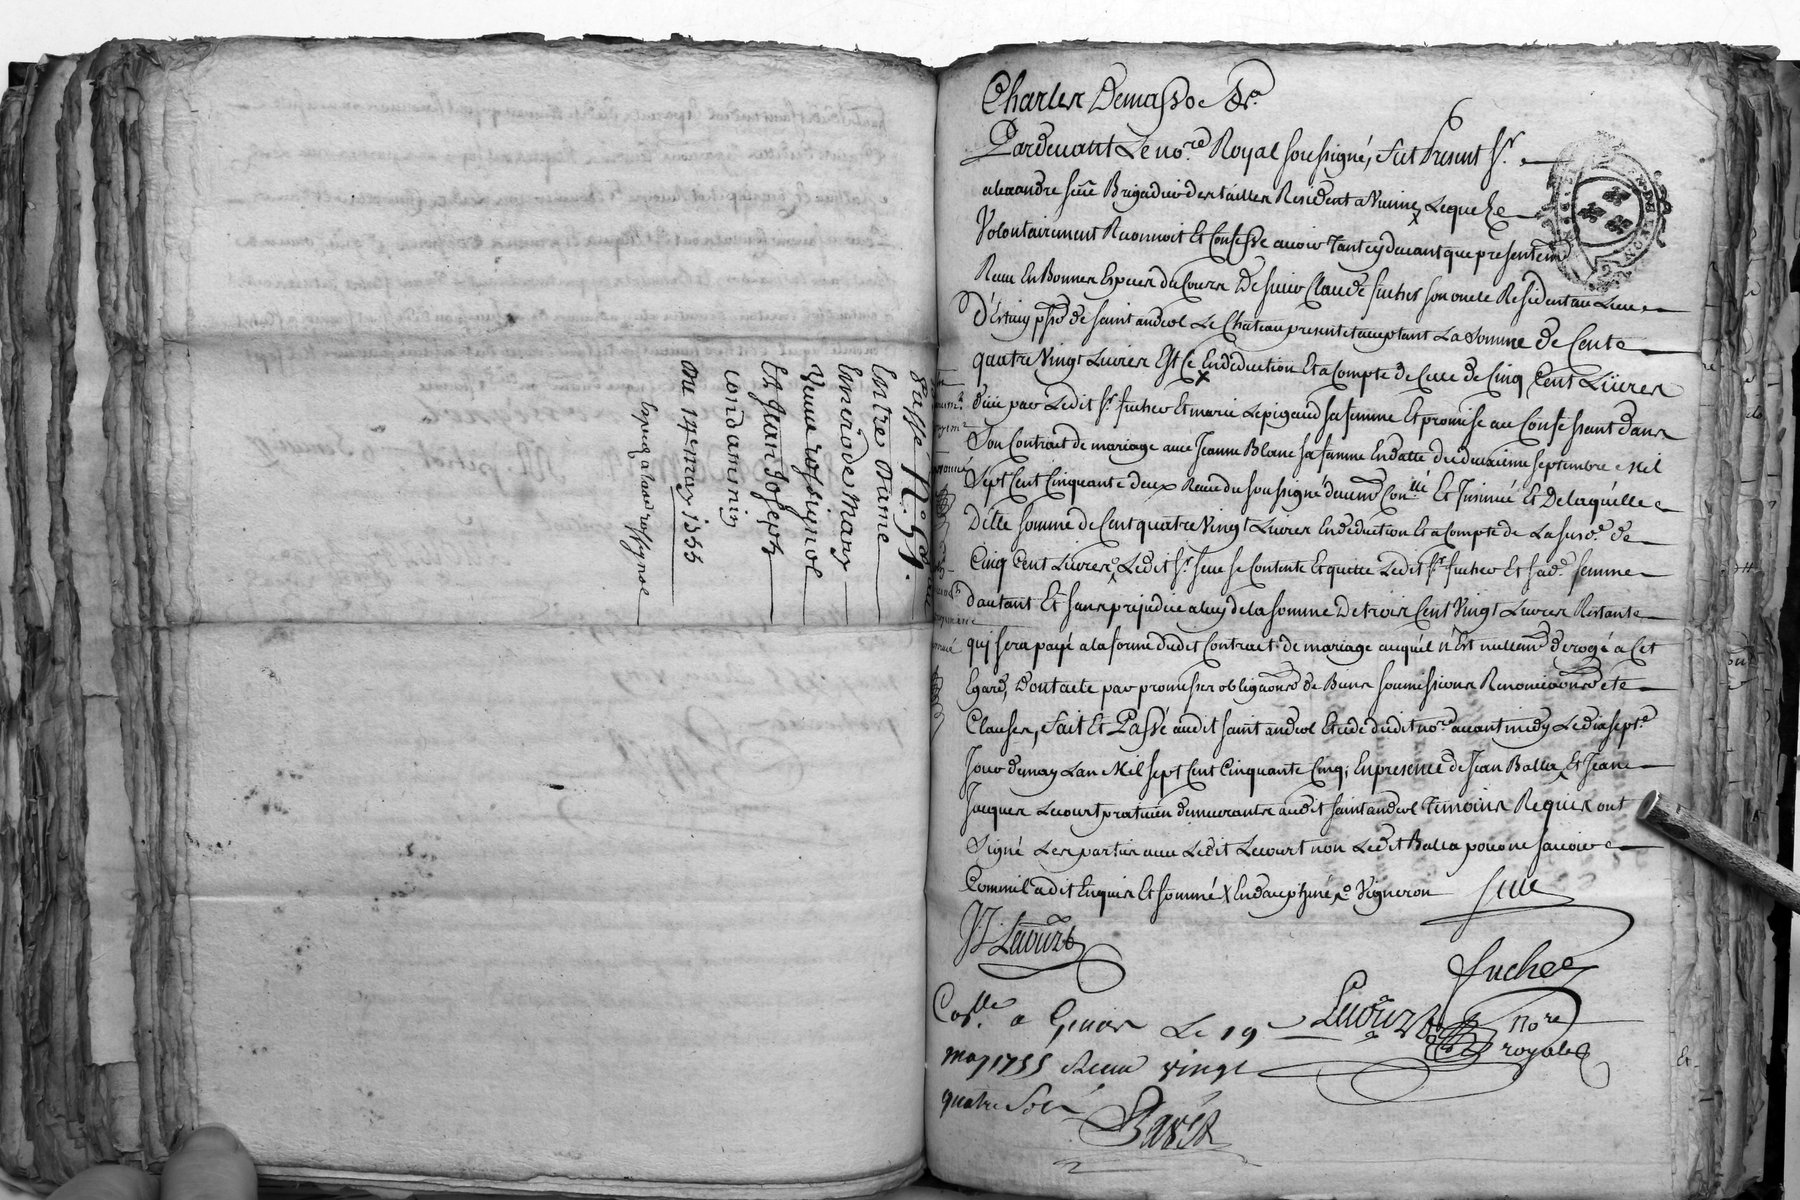 Passé N.o 64.
Entre Dame
Emerode Mary
Veuve rossignol
Et jean joseph
condamin
Du 14 may 1755
Charles Demasso &c.
Pardevant Le no.re Royal soussigné, fut Present s.r
alexandre seüe Brigadier des tailles Resident a Vienne x Lequel
Volontairement Reconnoit Et Confesse avoir tant cy devant que presentem.t
Receu En Bonnes Especes du Cours De sieur Claude fucher son oncle Résident au Lieu
D'Ertuy psse de saint andeol Le Chateau present et acceptant La Somme de Cent
quatre Vingt Livres Est Ce En deduction Et a Compte de Celle de Cinq Cent Livres
düe par Ledit s.r fucher Et marie Lepigaud sa femme Et promise au Confessant dans
Son Contrait de mariage avec Jeanne Blanc sa femme En datte du deuxieme septembre Mil
Sept Cent Cinquante deux Receu du soussigné duëm.t Con.lle Et Insinué Et De laquélle
Ditte somme de Cent quatre Vingt Livres En déduction Et a Compte de La susd.e de
Cinq Cent Livres Ledit s.r seue se Contente Et quitte Ledit s.r fucher Et sad.e femme
dautant Et sans prejudice a luy de la somme De trois Cent Vingt Livres Restante
quj sera payé a la forme dudit Contrait de mariage auquél n'Est nullem.t dérogé a Cet
Egard, Dont acte par promesses obligâons de Biens soumissions Renonciaôns et
Clauses, Fait Et Passé audit saint andeol Etude dudit no.re avant midy Le dix sept.e
Jour de may Lan Mil sept Cent Cinquante Cinq; En presence de Jean Balla x Et Jean
Jacques Lecourt praticien demeurants audit saint andeol Temoins Requis ont
Signé Les parties avec Ledit Lecourt non Ledit Balla pour ne sçavoir
Comm'il a dit Enquis Et sommé x En dauphiné x Vigneron seue
JJ Lecourt
fucher
Con.lle a Givors Le 19 Lecourt no.re
may 1755 Receu vingt royal
quatre Sols